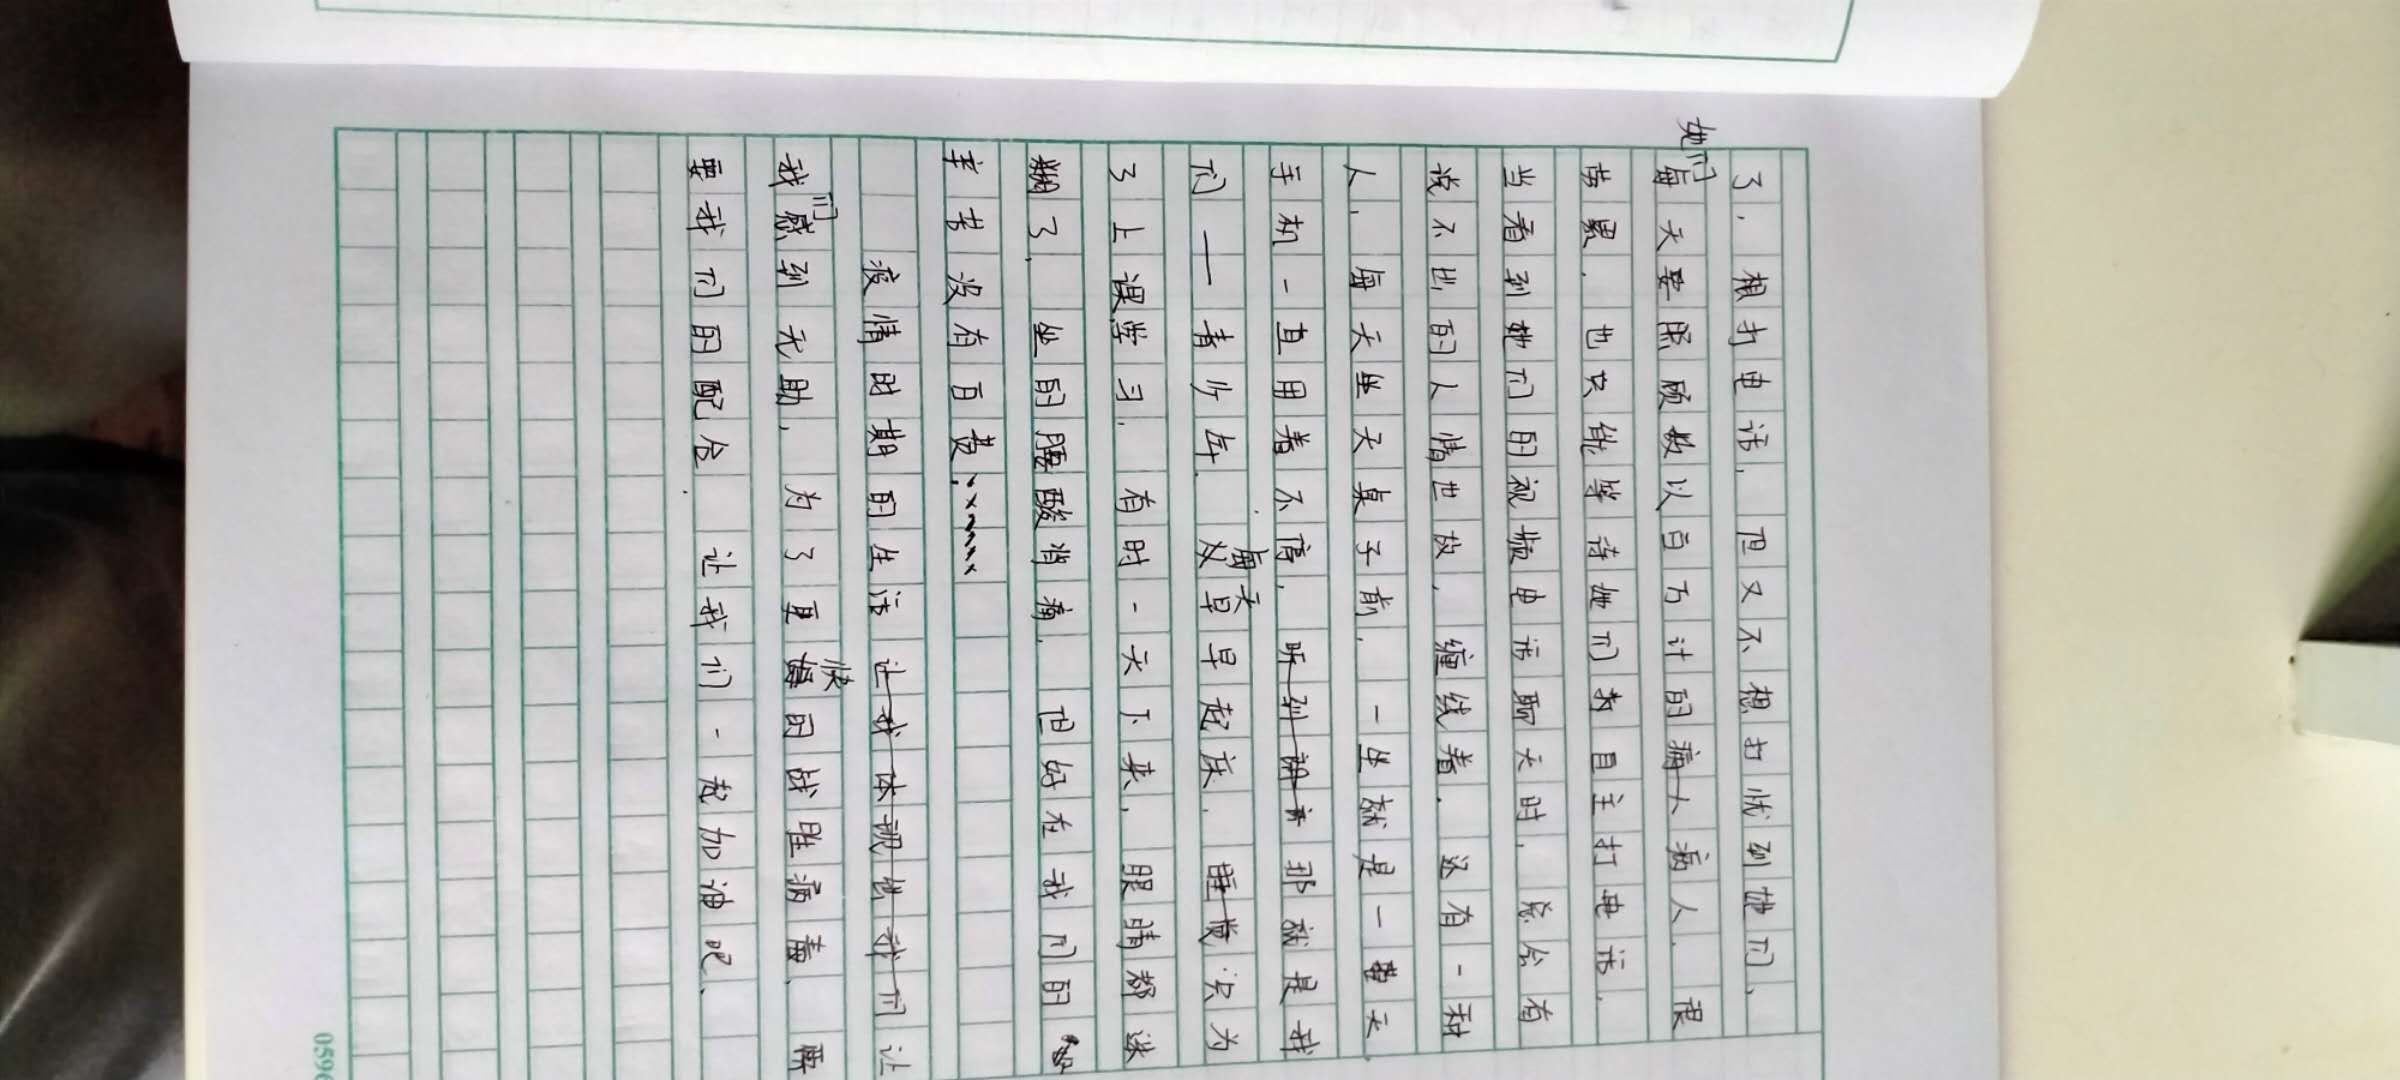 了，想打电话，但又不想打扰到她们，
她们每天要照顾数以百万计的病人病人．很
苦累．也只能等待她们来自主打电话．
当看到她们的视频电话聊天时，总会有
说不出的人情世故，缠绕着．这有一种
人，每天坐天桌子前．一坐就是一整天，
手机一直用着不停，听到那那就是我
们——青少年．每天双早早起床．睡觉只为
了上课学习．有时一天下来，眼睛都迷
糊了，坐的腰酸背痛．但好在我们的
辛苦没有白费，
疫情时期的生活让我体现他我们让
我们感到无助，为了更快的战胜病毒，需
要我们的配合．让我们一起加油吧、
0596